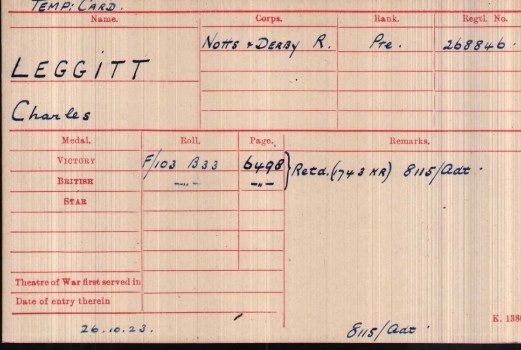 TEMP: CARD.
Name. Corps. Rank. Regtl. No.
NOTTS & DERBY R. Pte. 268846
LEGGITT
Charles
Medal. Roll. Page. Remarks.
VICTORY F/103 B33 6498 } Retd. (1743 KR) 8115/Adt.
BRITISH —„— —„—
STAR
Theatre of War first served in
Date of entry therein
K. 1380
26.10.23. 8115/Adt.